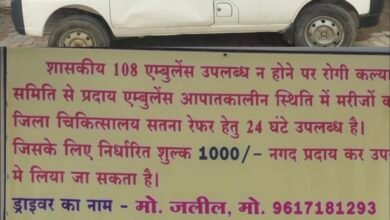 शासकीय 108 एम्बुलेंस उपलब्ध न होने पर रोगी कल्य
समिति से प्रदाय एम्बुलेंस आपातकालीन स्थिति में मरीजों क
जिला चिकित्सालय सतना रेफर हेतु 24 घंटे उपलब्ध है।
जिसके लिए निर्धारित शुल्क 1000/- नगद प्रदाय कर उप
मे लिया जा सकता है।
ड्राइवर का नाम - मो. जलील, मो. 9617181293